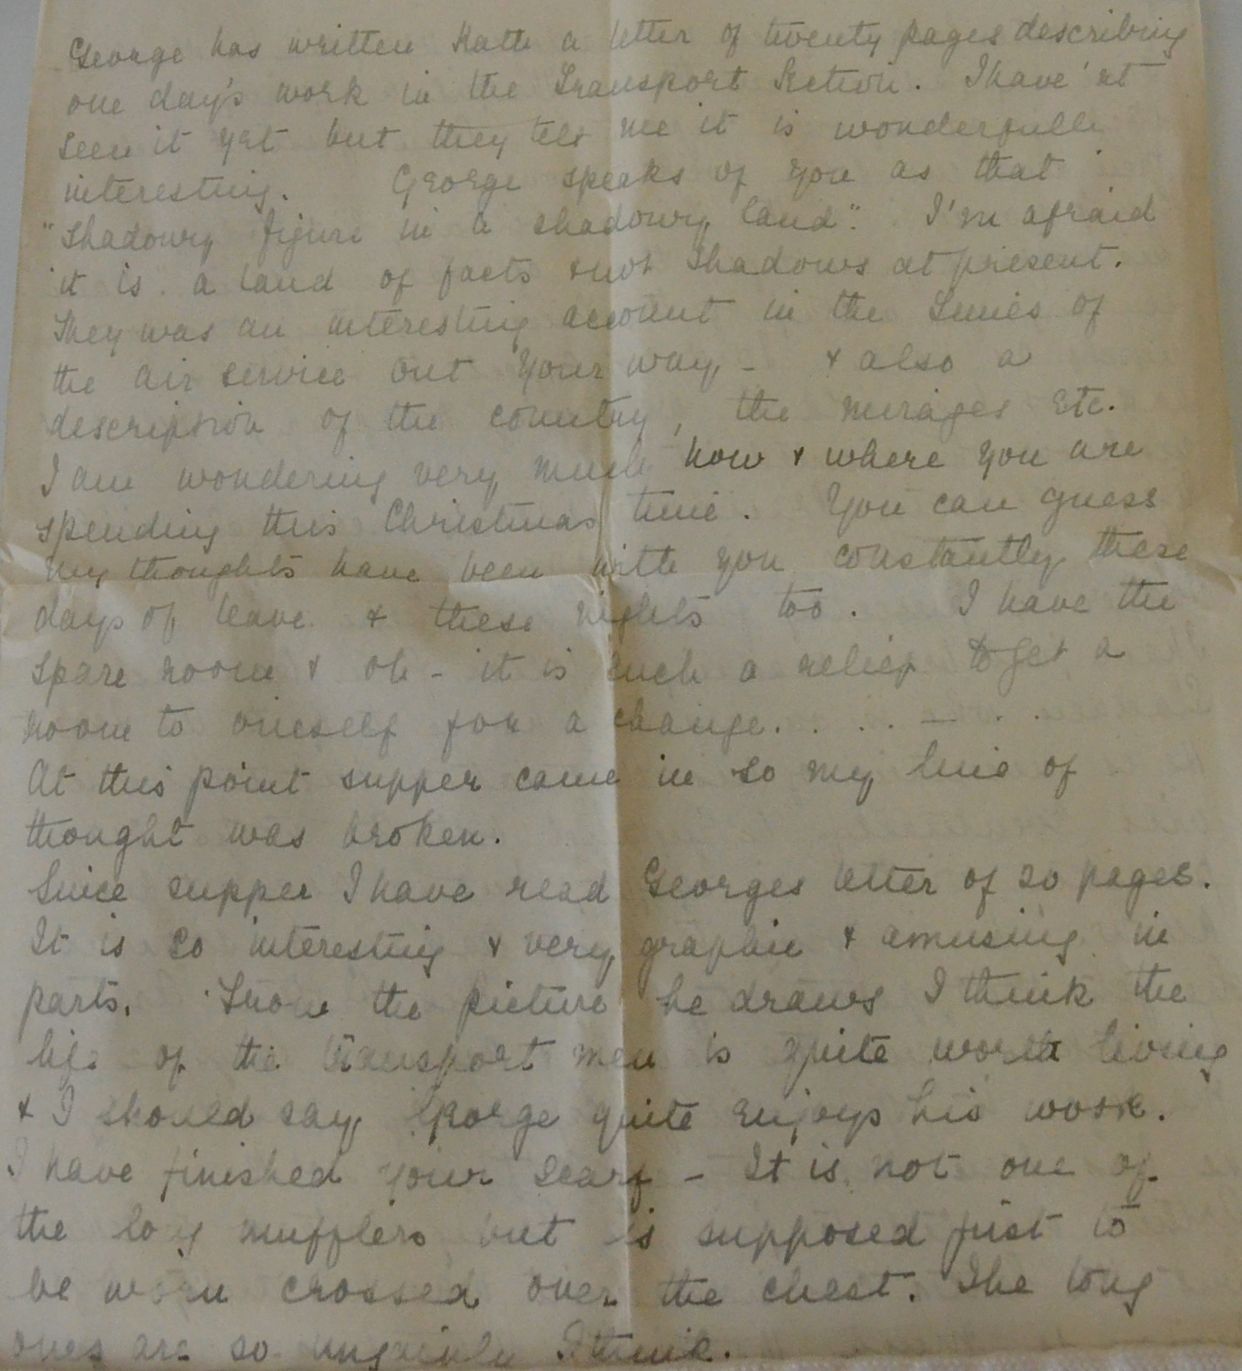 George has written Kath a letter of twenty pages describing
one day's work in the Transport Section. I have'nt
seen it yet but they tell me it is wonderfully
interesting. George speaks of you as that
"shadowy figure in a shadowy land". I'm afraid
it is a land of facts & not shadows at present.
They was an interesting account in the Times of
the air service out your way - & also a
description of the country, the mirages etc.
I am wondering very much how & where you are
spending this Christmas time. You can guess
my thoughts have been with you constantly these
days of leave & these nights too. I have the
spare room & oh - it is such a relief to get a
room to oneself for a change. . . . - . .
At this point supper came in so my line of
thought was broken.
Since supper I have read Georges letter of 20 pages.
It is so interesting & very graphic & amusing in
parts. From the picture he draws I think the
life of the transport men is quite worth living
& I should say George quite enjoys his work.
I have finished your scarf - It is not one of
the long mufflers but is supposed just to
be worn crossed over the chest. The long
ones are so ungainly I think.